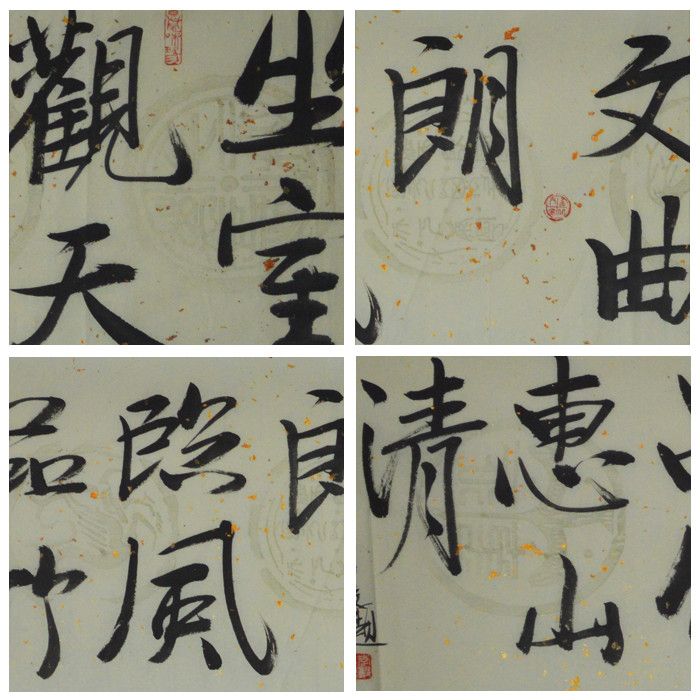 坐室
觀天
文曲
朗
臨風
品
惠山
清